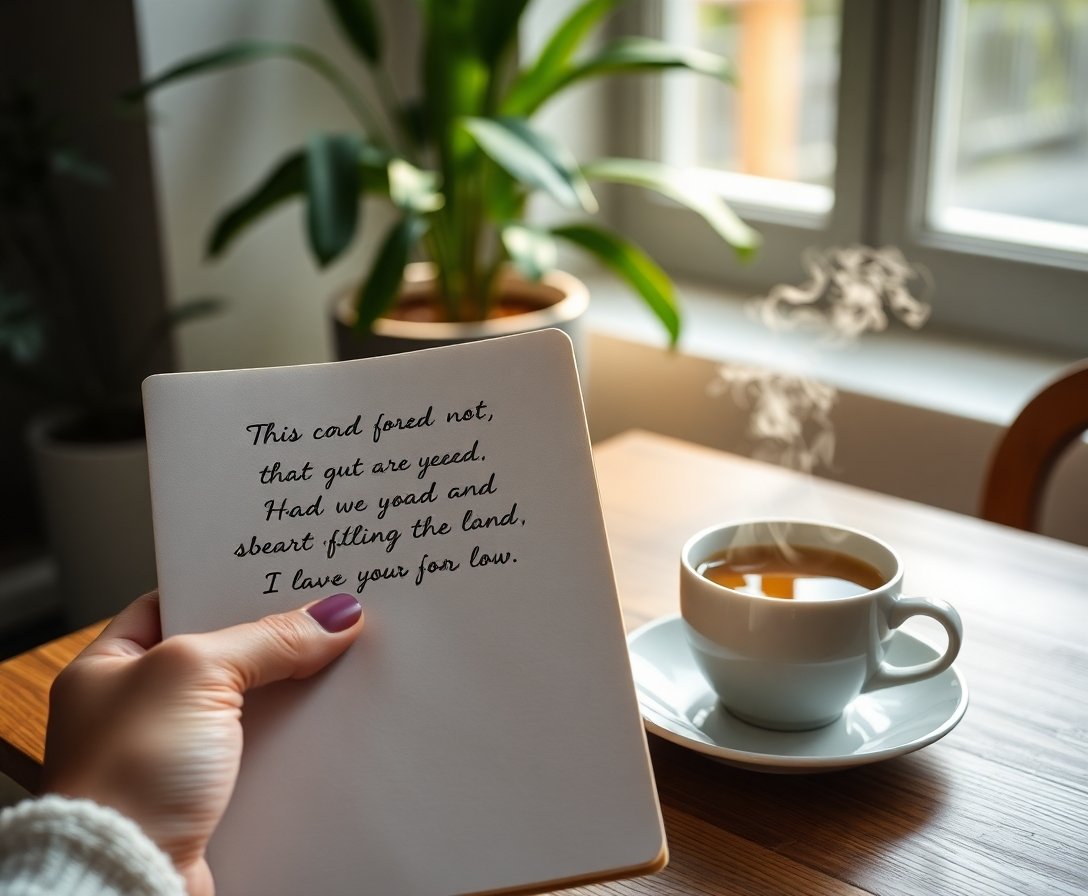 This cord fored not,
that gut are yeeed.
Had we yoad and
sbeart flling the land,
I lave your for low.